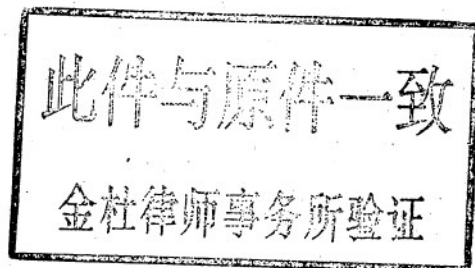 此件与原件一致
金杜律师事务所验证